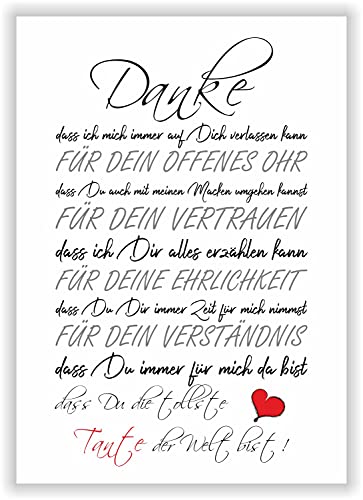 Danke
dass ich mich immer auf Dich verlassen kann
FÜR DEIN OFFENES OHR
dass Du auch mit meinen Macken umgehen kannst
FÜR DEIN VERTRAUEN
dass ich Dir alles erzählen kann
FÜR DEINE EHRLICHKEIT
dass Du Dir immer Zeit für mich nimmst
FÜR DEIN VERSTÄNDNIS
dass Du immer für mich da bist
dass Du die tollste
Tante der Welt bist !